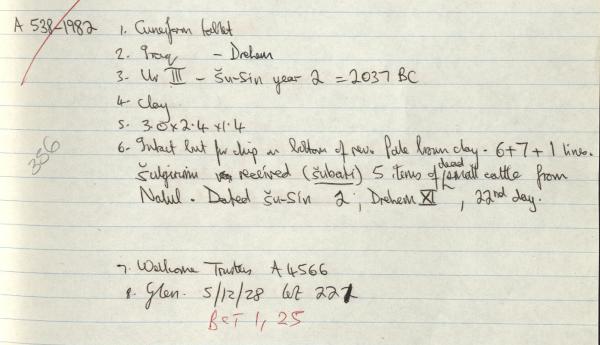 A 538-1982 1. Cuneiform tablet
2. Iraq - Drehem
3. Ur III - Šu-Sin year 2 = 2037 BC
4. Clay
5. 3.0 x 2.4 x 1.4
6. Intact but for chip on bottom of rev. Pale brown clay - 6+7+1 lines.
Šulgirimu received (šubati) 5 items of dead small cattle from
Nalul. Dated Šu-Sin 2, Drehem XI, 22nd day.
7. Wellcome Trustees A 4566
8. Glen. 5/12/28 Lot 221
BCT 1, 25